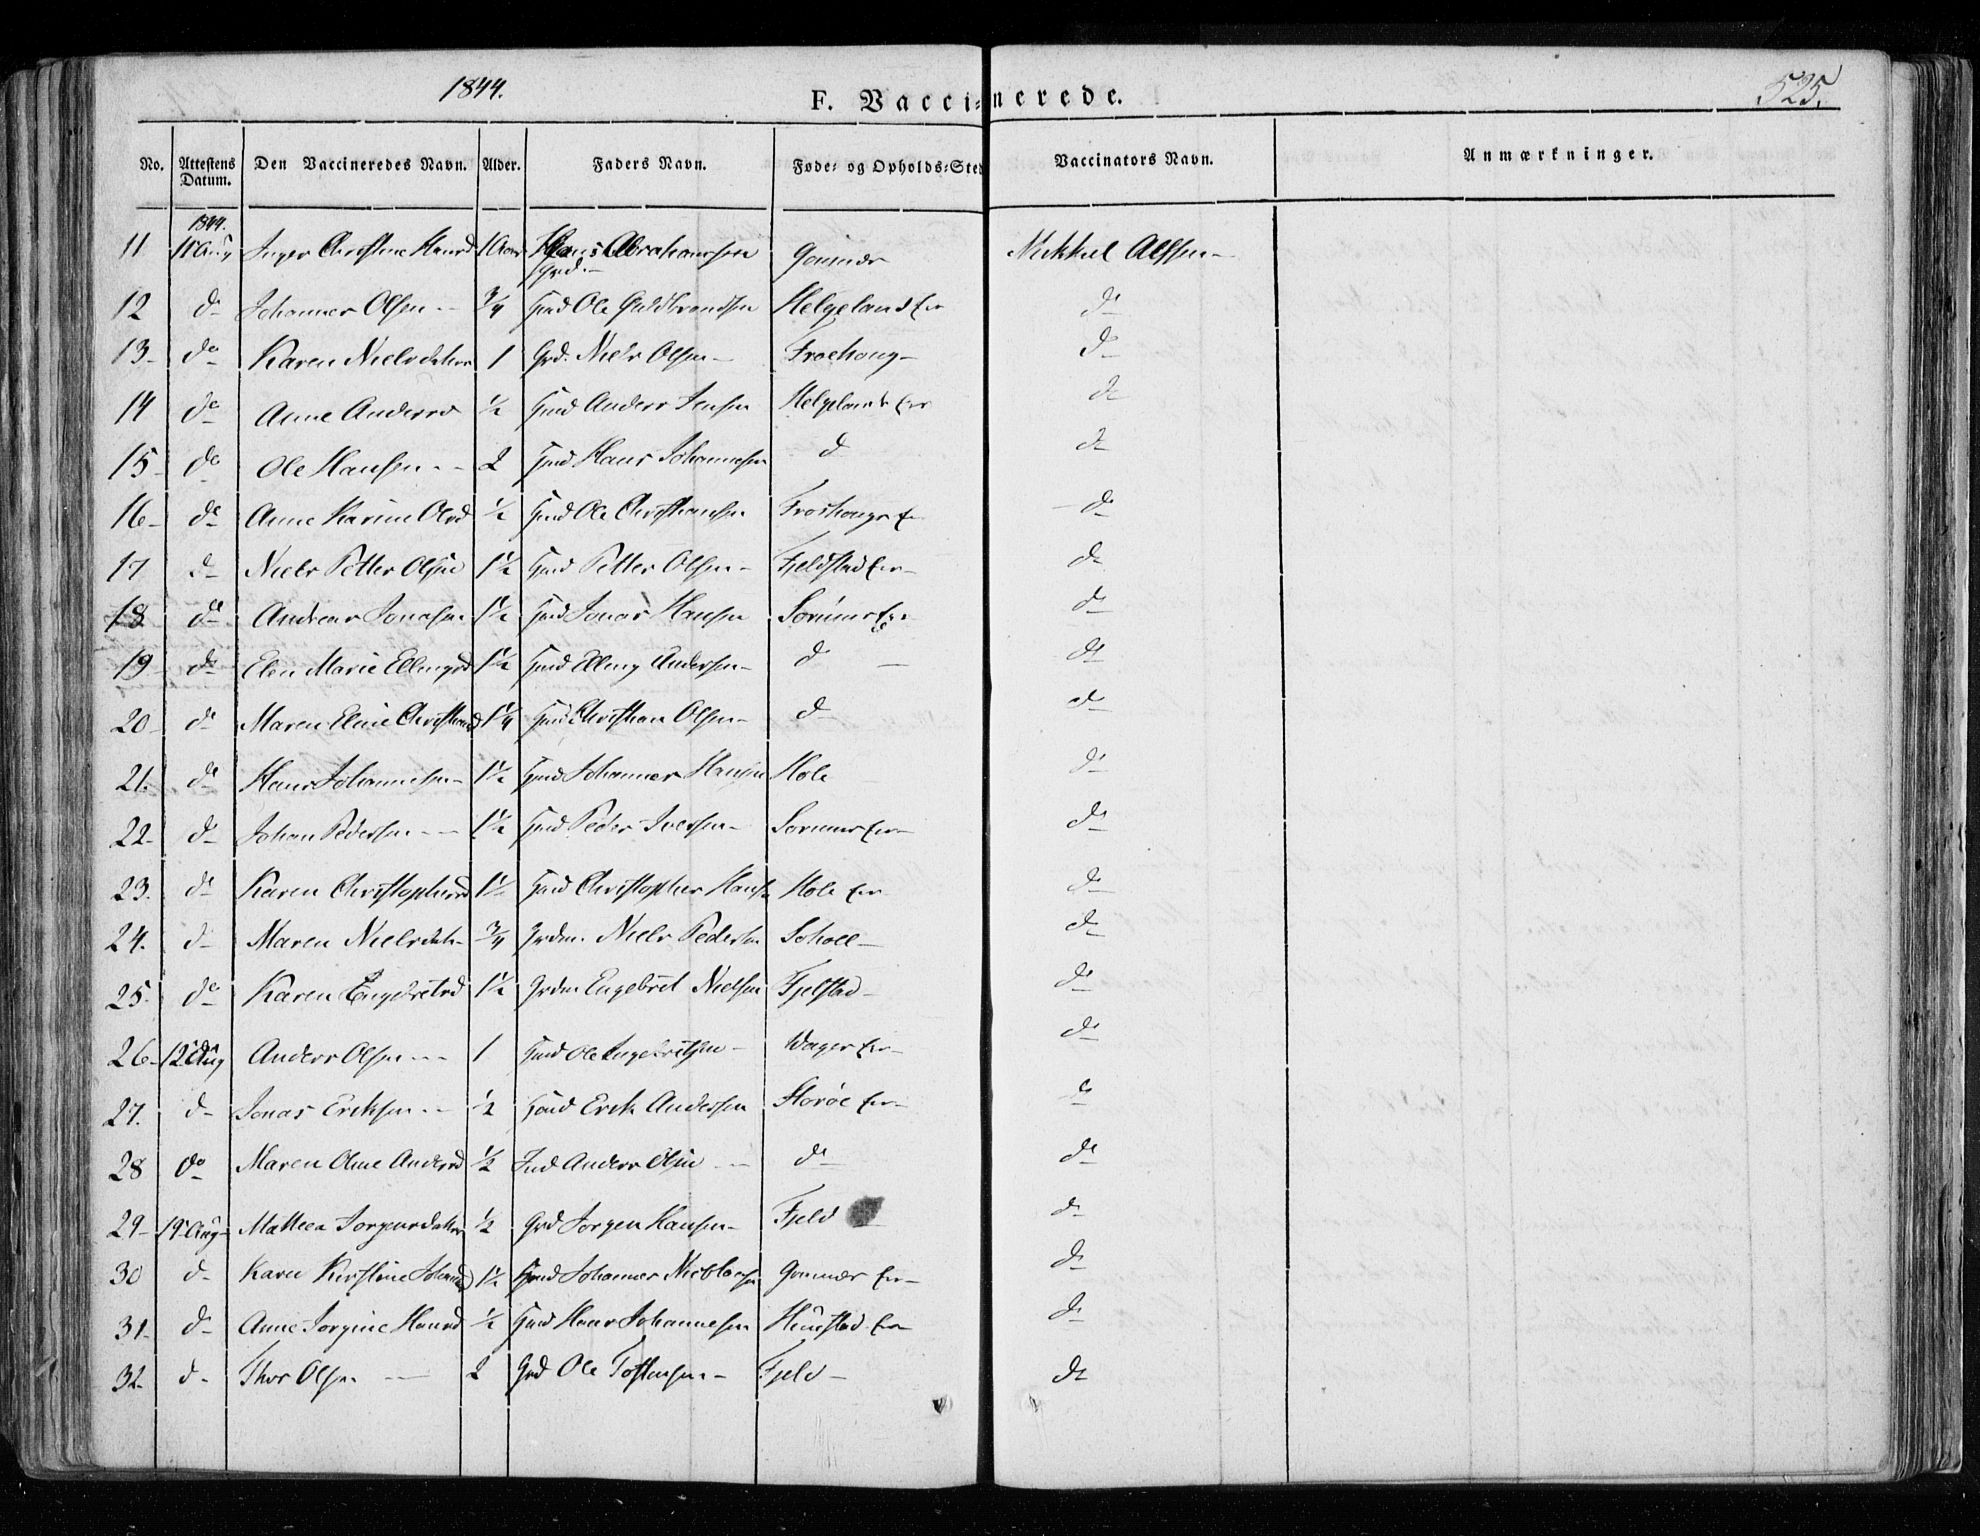 1844.
F. Vaccinerede.
525.
No. Attestens Datum. Den Vaccineredes Navn. Alder. Faders Navn. Føde- og Opholds-Sted Vaccinators Navn. Anmærkninger.
1844.
11 11 Aug Inger Christine Hansd 1 Aar Hans Abrahamsen Gomnæs Mikkel Alfsen
Grd.
12 do Johannes Olsen 3/4 Hmd Ole Guldbrandsen Helgeland Eie do
13 do Karen Nielsdatter 1 Grd. Niels Olsen Frøehoug do
14 do Anne Andersd 1/2 Hmd Anders Jensen Helgelands Eie do
15 do Ole Hansen 2 Hmd Hans Johannesen do do
16 do Anne Karine Olsd 1/2 Hmd Ole Christiansen Frøshougs E do
17 do Niels Petter Olsen 1 1/2 Hmd Petter Olsen Fjeldstad Eie do
18 do Andreas Jonasen 1 1/2 Hmd Jonas Hansen Sørums Eie do
19 do Elen Marie Ellingsd 1 1/2 Hmd Elling Andersen do do
20 do Maren Eline Christiansd 1 1/4 Hmd Christian Olsen do do
21. do Hans Johannesen 1 1/2 Hmd Johannes Hansen Hole do
22 do Johan Pedersen 1 1/2 Hmd Peder Iversen Sørums Eie do
23. do Karen Christophersd 1 1/2 Hmd Christopher Hansen Hole Eie do
24. do Maren Nielsdatr 3/4 Grdm. Niels Pedersen do
25 do Karen Engebretsd 1 1/2 Grdm Engebret Nielsen Fjelstad do
26 12 Aug Anders Olsen 1 Hmd Ole Engebretsen Wager Eie do
27. do Jonas Eriksen 1/2 Hmd Erik Andersen Storøe Eie do
28 do Maren Oline Andersd 1/2 Anders Olsen do do
29 19 Aug Mathea Jørgensdatter 1/2 Grd Jørgen Hansen Fjeld do
30 do Karen Kirstine Johannesd 1 1/2 Hmd Johannes Gomnæs Eie do
31 do Anne Jørgine Hansd 1/2 Hmd Hans Johannesen Hunstad Eie do
32 do Thor Olsen 2 Grd Ole Tostensen Fjeld do